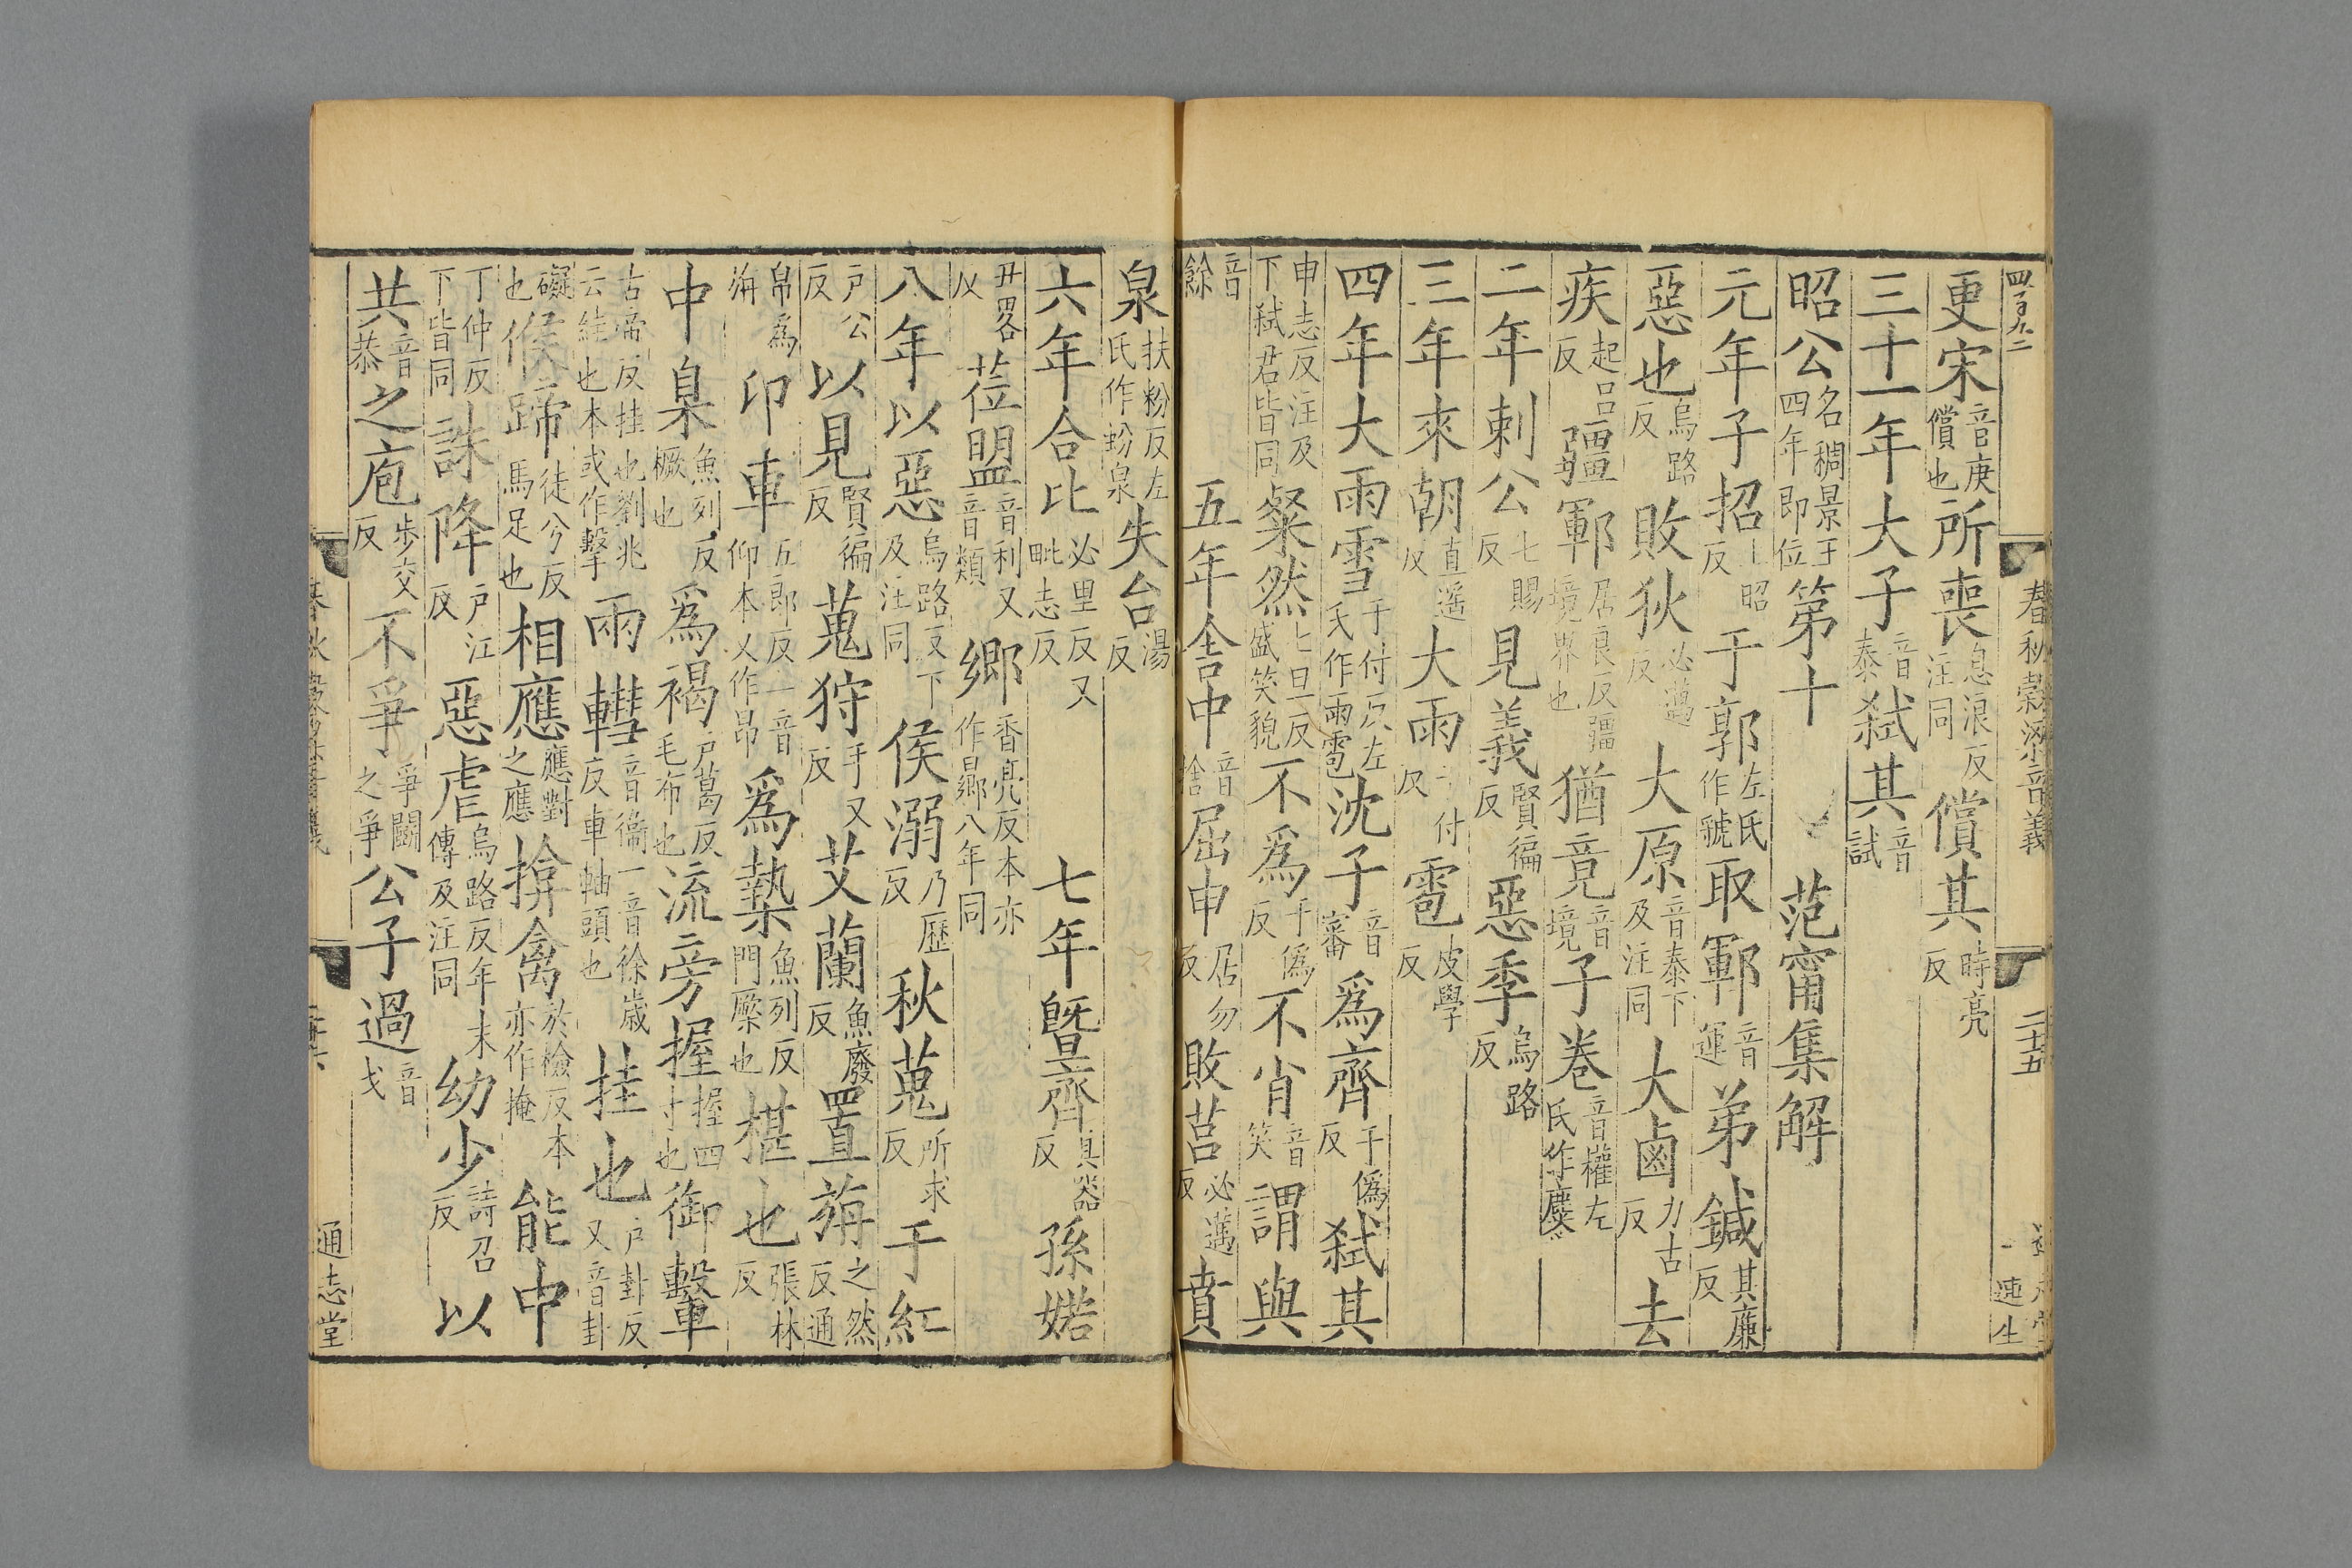 四百九二
春秋穀梁音義
二十五
更宋音庚償也所喪息浪反注同償其時亮反
三十一年大子音泰弑其音試
昭公名稠景王四年即位第十 范甯集解
元年子招上昭反于郭左氏作虢取鄆音運弟鍼其廉反
惡也烏路反敗狄必邁反大原音泰下及注同大鹵力古反去
疾起呂反疆鄆居良反疆境界也猶竟音境子卷音權左氏作麇
二年刺公七賜反見義賢徧反惡季烏路反
三年來朝直遥反大雨于付反雹皮學反
四年大雨雪于付反左氏作雨雹沈子音審為齊于偽反弑其
申志反注及下弑君皆同粲然七旦反盛笑貌不為于偽反不肖音笑謂與
音餘 五年舍中音捨屈申居勿反敗莒必邁反賁
泉扶粉反左氏作蚡泉失台湯反
六年合比必里反又毗志反 七年曁齊其器反孫婼
丑畧反莅盟音利又音類鄉香亮反本亦作嚮八年同
八年以惡烏路反下及注同侯溺乃歷反秋蒐所求反于紅
戶公反以見賢徧反蒐狩手又反艾蘭魚廢反置旃之然反通
帛為旃卬車五郎反一音仰本又作昂為槷魚列反門橜也椹也張林反
中臬魚列反橛也為褐戶葛反毛布也流旁握握四寸也御轚
古帝反挂也劉兆云絓也本或作擊兩轊音衞一音徐歲反車軸頭也挂也戶卦反又音卦
礙也候蹄徒兮反馬足也相應應對之應揜禽於檢反本亦作掩能中
丁仲反下皆同誅降戶江反惡虐烏路反年末傳及注同幼少詩召反以
共音恭之庖步交反不爭爭鬬之爭公子過音戈
通志堂